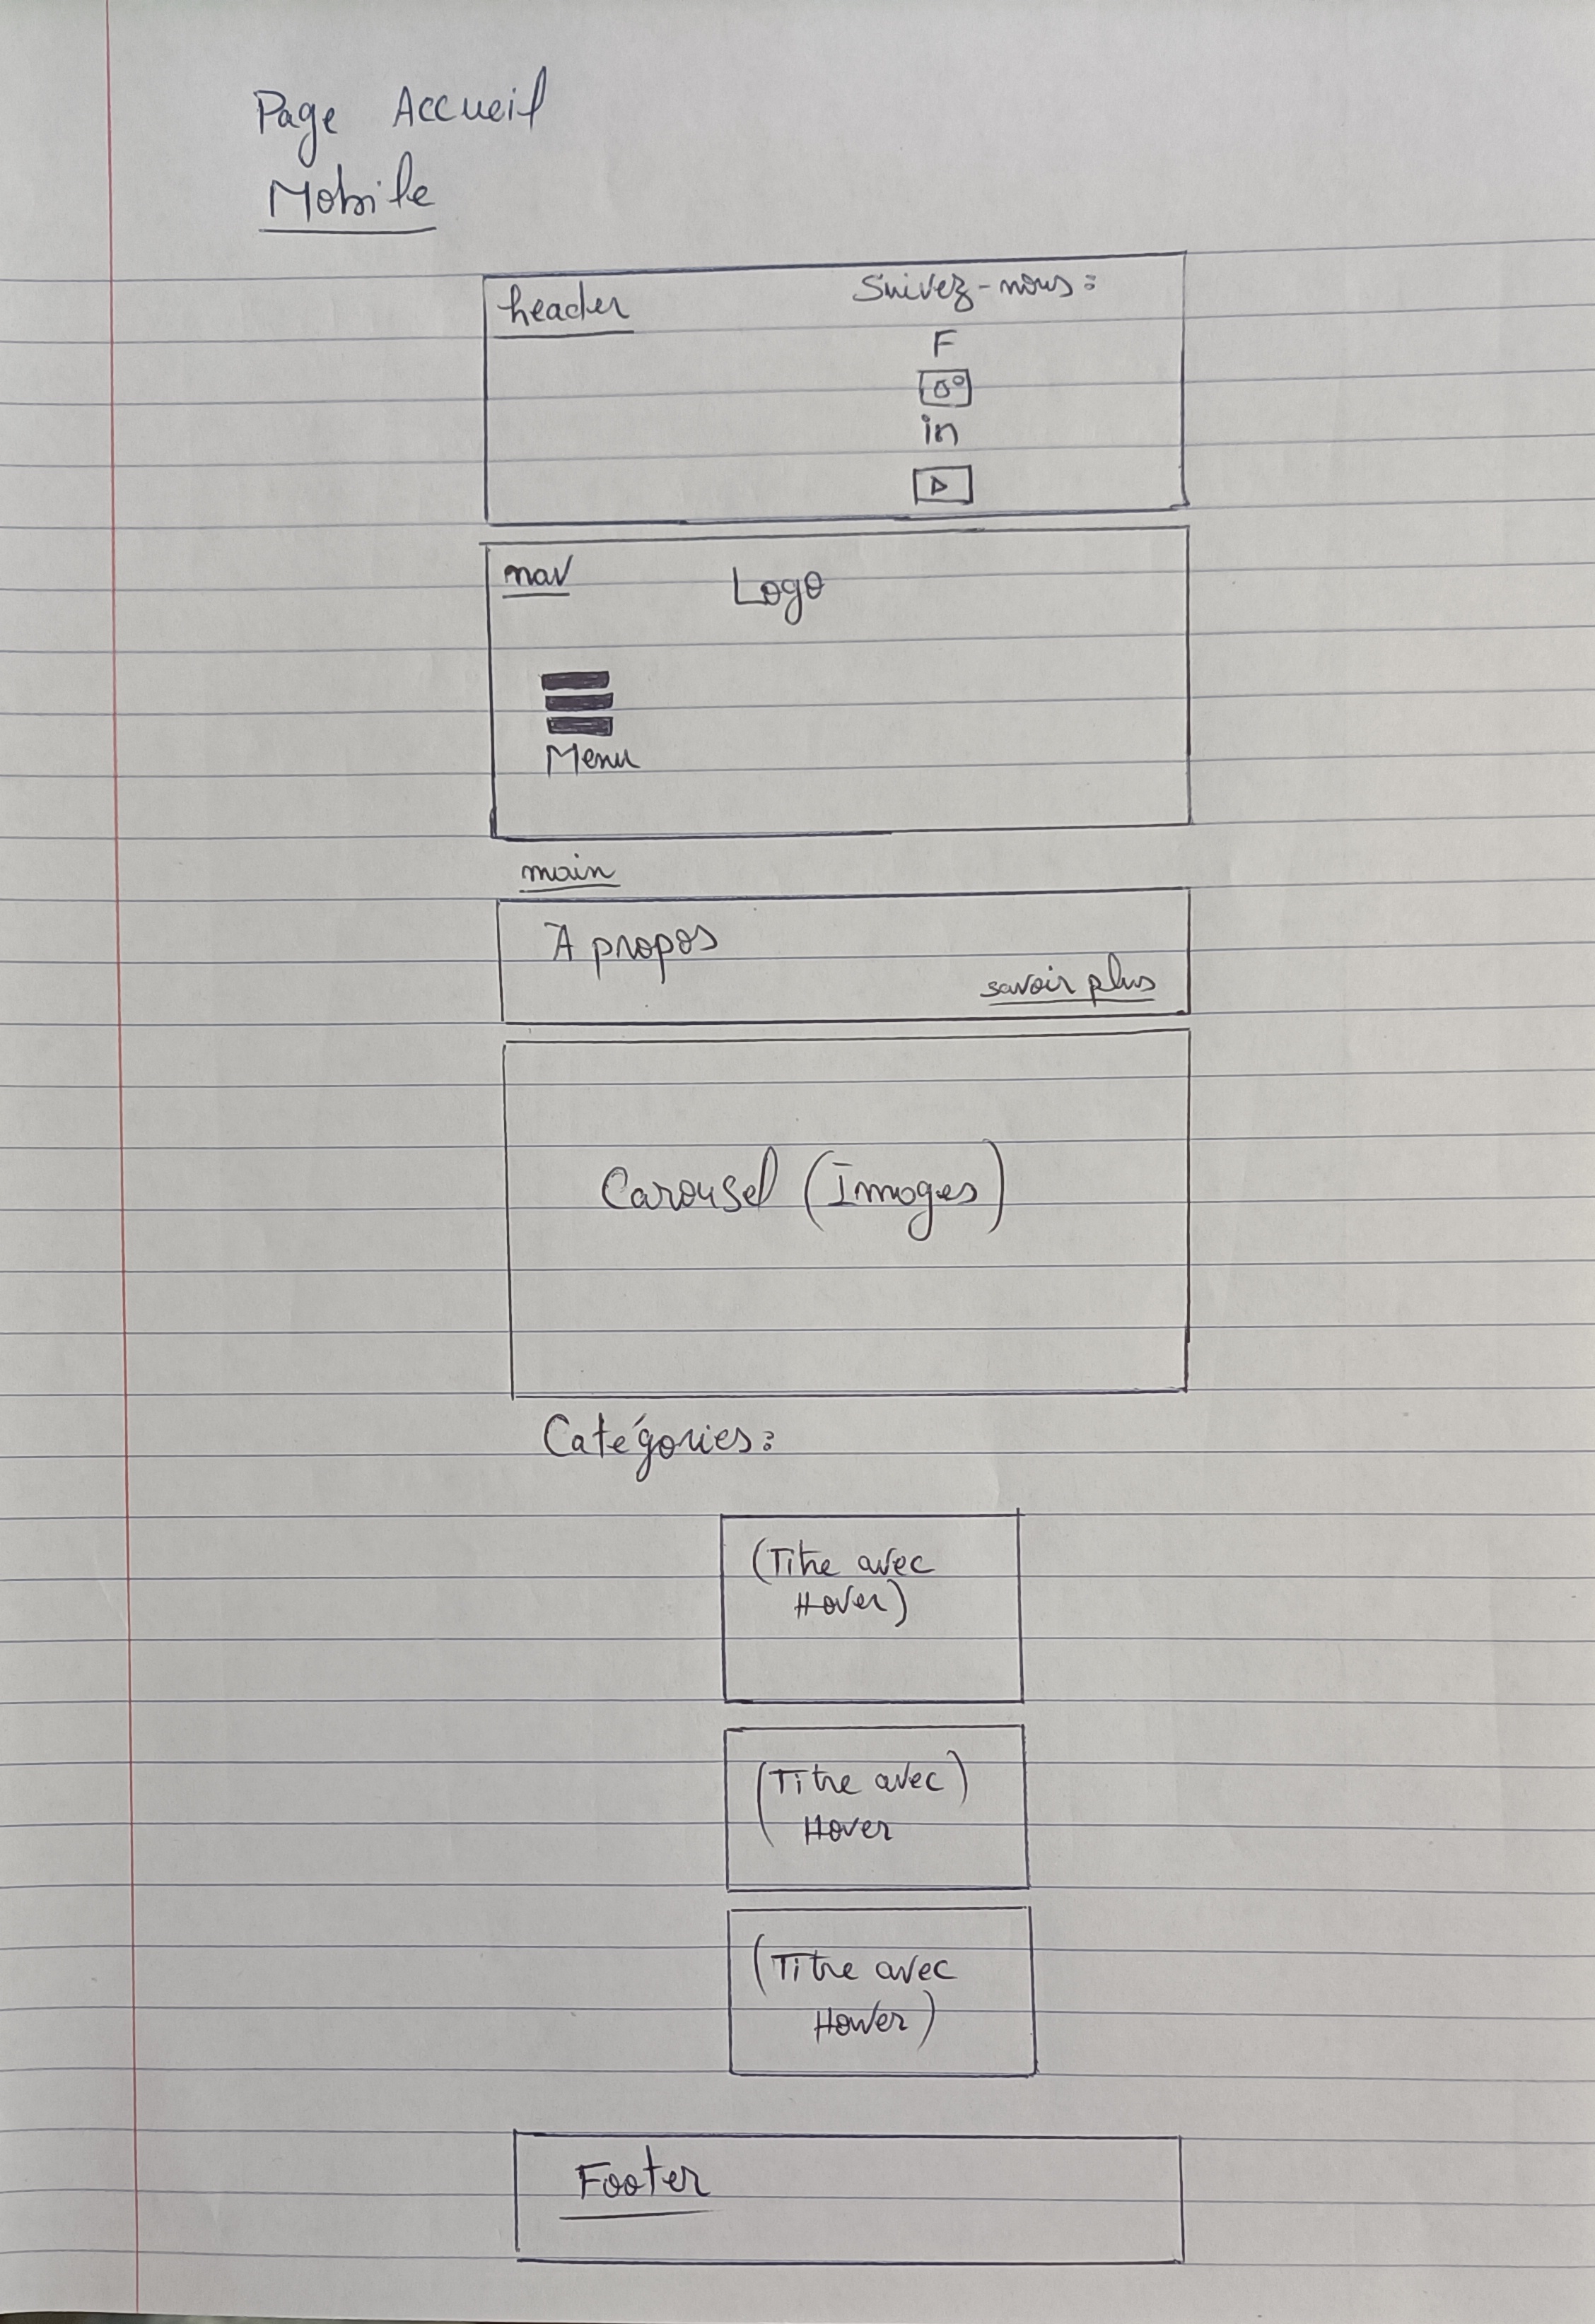 Page Accueil
Mobile
header
Suivez-nous:
F
in
nav
Logo
Menu
main
À propos
savoir plus
Carousel (Images)
Catégories:
(Titre avec
Hover)
(Titre avec)
Hover
(Titre avec
Hover)
Footer